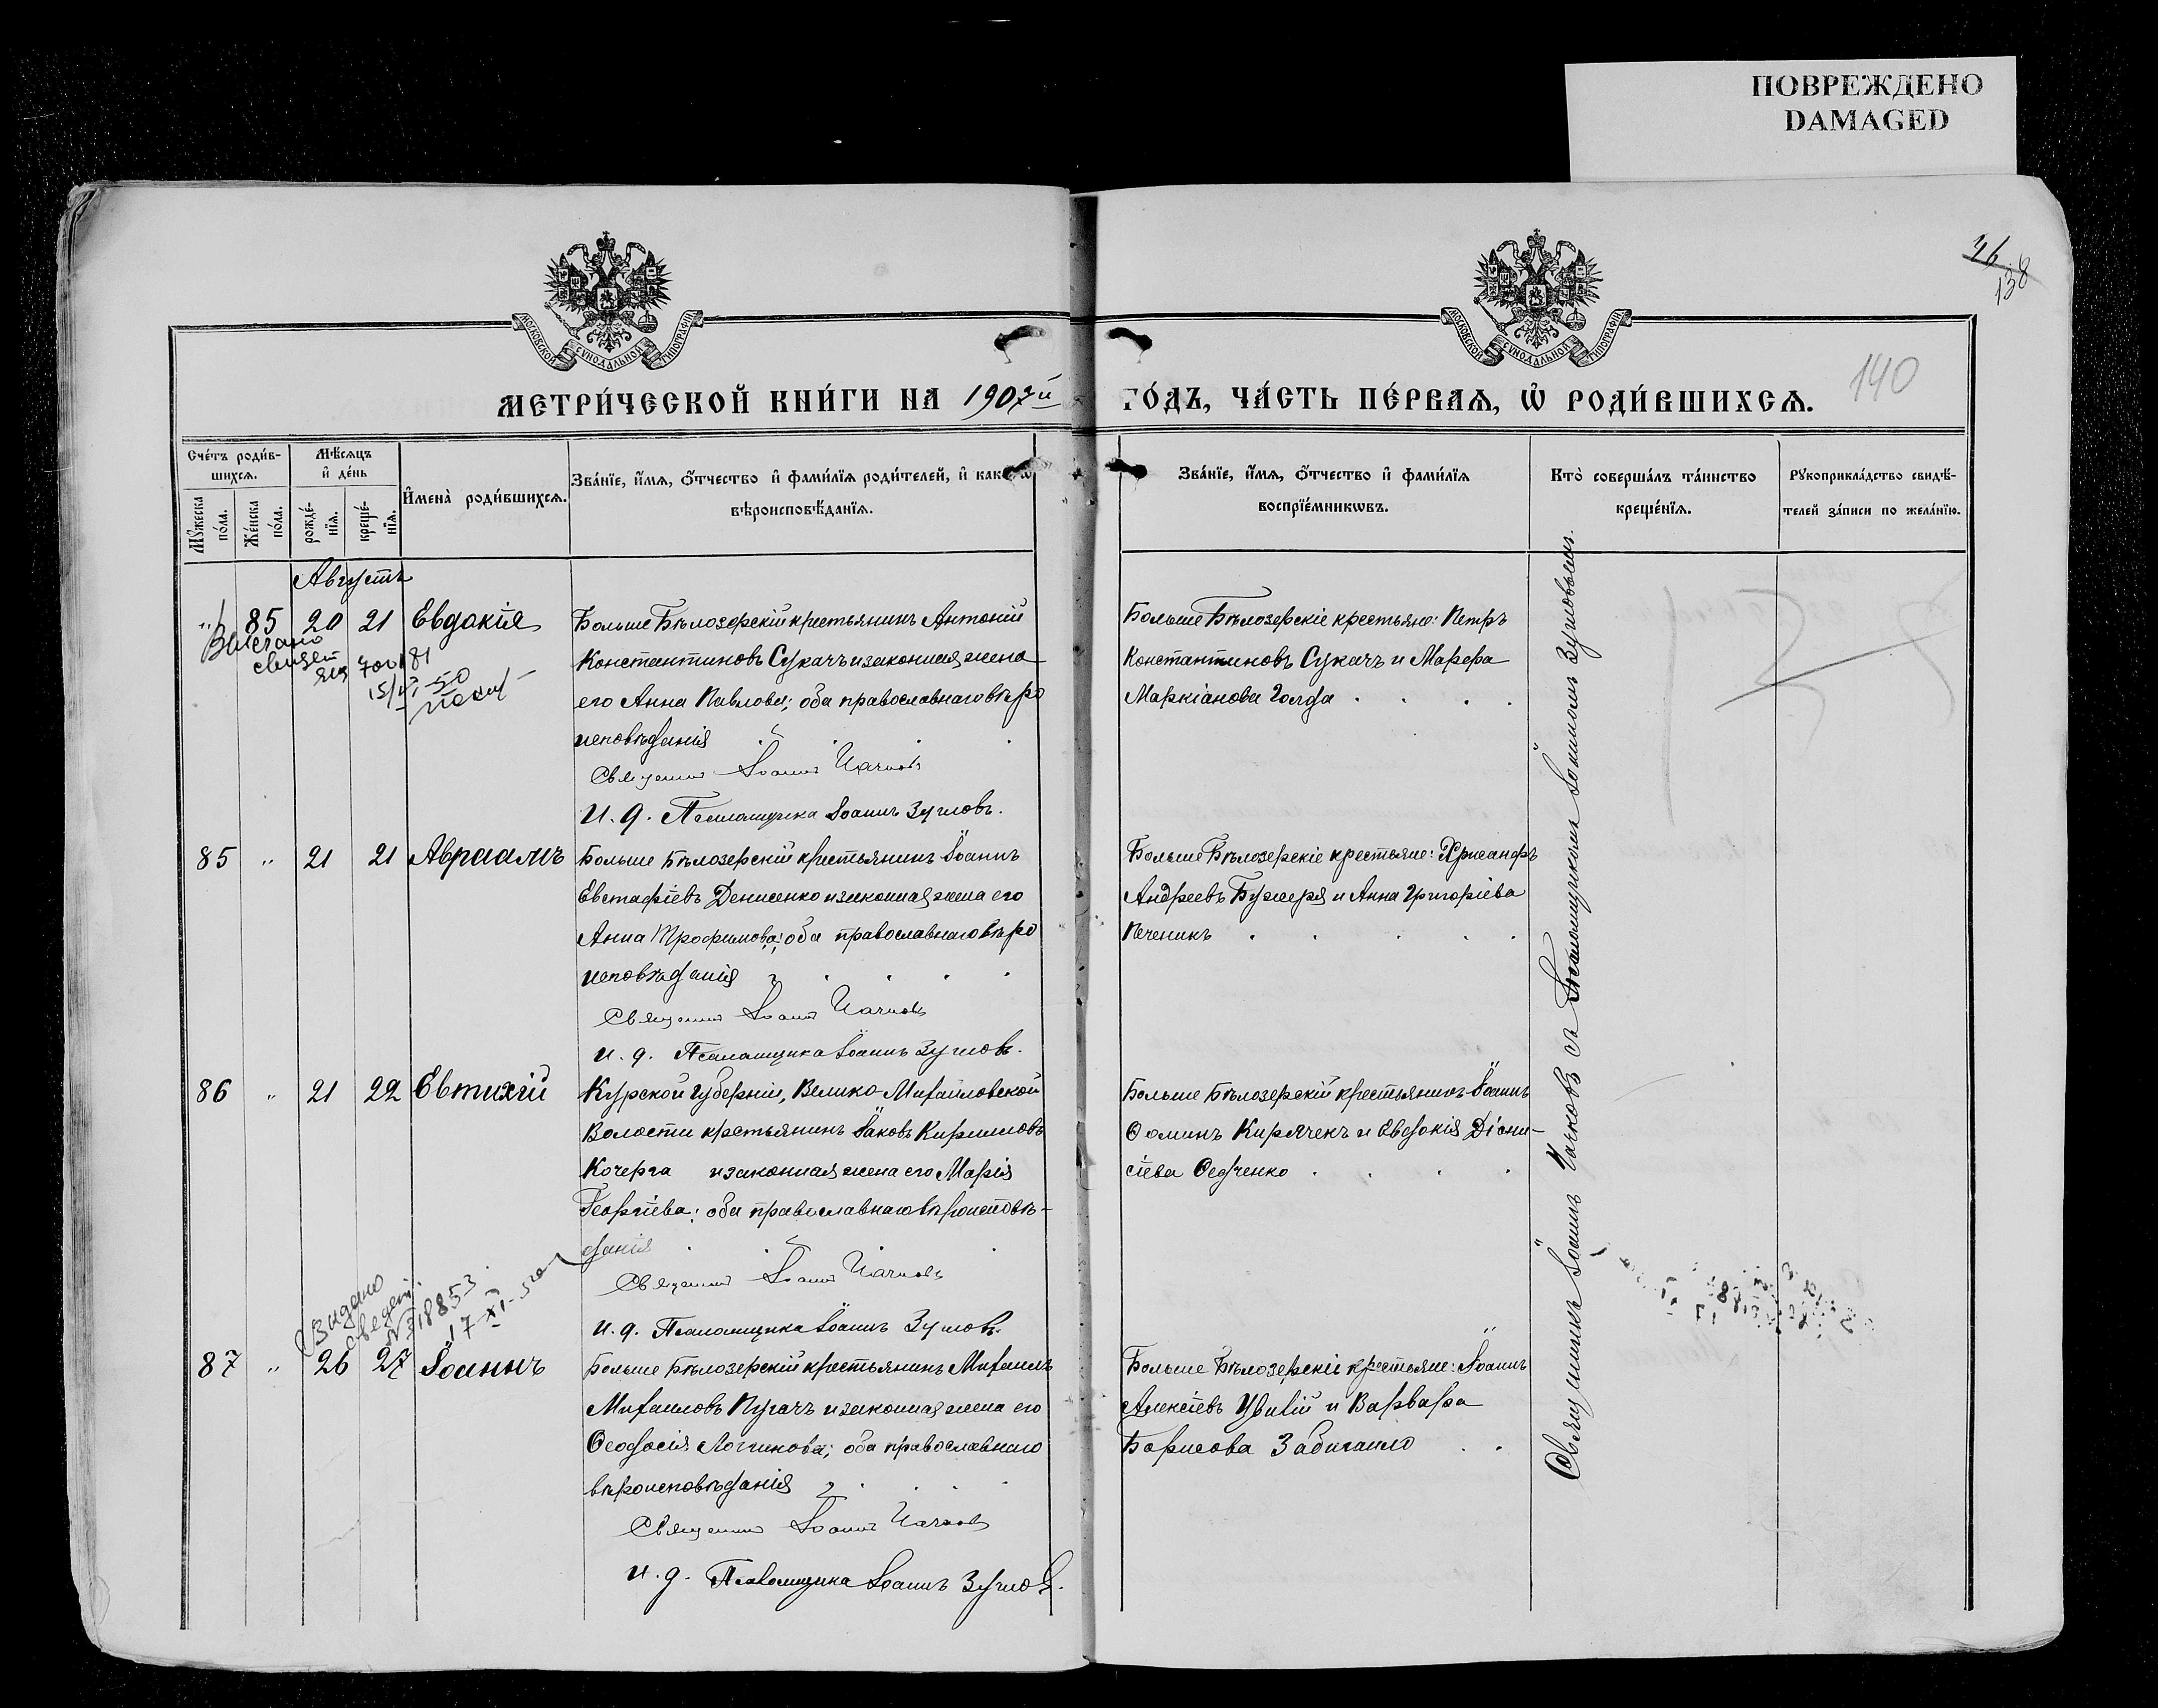 ПОВРЕЖДЕНО
DAMAGED
46
138
140
МОСКОВСКОЙ СѴНОДАЛЬНОЙ ТИПОГРАФІИ
МОСКОВСКОЙ СѴНОДАЛЬНОЙ ТИПОГРАФІИ
МЕТРИ́ЧЕСКОЙ КНИ́ГИ НА 1907й
ГО́ДЪ, ЧА́СТЬ ПЕ́РВАЯ, Ѡ҆ РОДИ́ВШИХСЯ.
Сче́тъ роди́в-
шихся.
Мꙋ́жеска по́ла.
Же́нска по́ла.
Мѣ́сяцъ
и҆ де́нь
рожде́-
нїя.
креще́-
нїя.
И҆мена̀ роди́вшихся.
Зва́нїе, и҆́мя, ѻ҆́тчество и҆ фами́лїя роди́телей, и҆ како́гѡ
вѣроисповѣ́данїя.
Зва́нїе, и҆́мя, ѻ҆́тчество и҆ фами́лїя
воспрїе́мникѡвъ.
Кто̀ соверша́лъ та́инство
креще́нїя.
Рꙋкоприкла́дство свидѣ́-
телей за́писи по жела́нїю.
Августъ
" 85 20 21 Евдокія
Больше Бѣлозерскій крестьянинъ Антоній
Константиновъ Сукачъ и законная жена
его Анна Павлова; оба православнаго вѣро
исповѣданія
Священник Іоаннъ Чачковъ
И. д. Псаломщика Іоаннъ Зугловъ.
Больше Бѣлозерскіе крестьяне: Петръ
Константиновъ Сукачъ и Марфа
Маркіанова Голда
85 " 21 21 Авраамъ
Больше Бѣлозерскій крестьянинъ Іоаннъ
Евстафіевъ Денисенко и законная жена его
Анна Трофимова; оба православнаго вѣро
исповѣданія
Священник Іоаннъ Чачковъ
И. д. Псаломщика Іоаннъ Зугловъ.
Больше Бѣлозерскіе крестьяне: Хрисанфъ
Андреевъ и Анна Григоріева
Печеникъ
86 " 21 22 Евтихій
Курской Губерніи, Велико-Михайловской
Волости крестьянинъ Іаковъ Кирилловъ
Кочерга и законная жена его Марія
Георгіева; оба православнаго вѣроисповѣ-
данія
Священник Іоаннъ Чачковъ
И. д. Псаломщика Іоаннъ Зугловъ.
Больше Бѣлозерскій крестьянинъ Іоаннъ
Ѳоминъ Кирячекъ и Евдокія Діони-
сіева Ѳедченко
Видано
сведен.
№ 18853
17 XI-
87 " 26 27 Іоаннъ
Больше Бѣлозерскій крестьянинъ Михаилъ
Михаиловъ Пугачъ и законная жена его
Ѳеодосія Логгинова; оба православнаго
вѣроисповѣданія
Священник Іоаннъ Чачковъ
И. д. Псаломщика Іоаннъ Зугловъ.
Больше Бѣлозерскіе крестьяне: Іоаннъ
Алексіевъ Цвилій и Варвара
Борисова Забигайло
Священникъ Іоаннъ Чачковъ съ Псаломщикомъ Іоанномъ Зугловымъ.